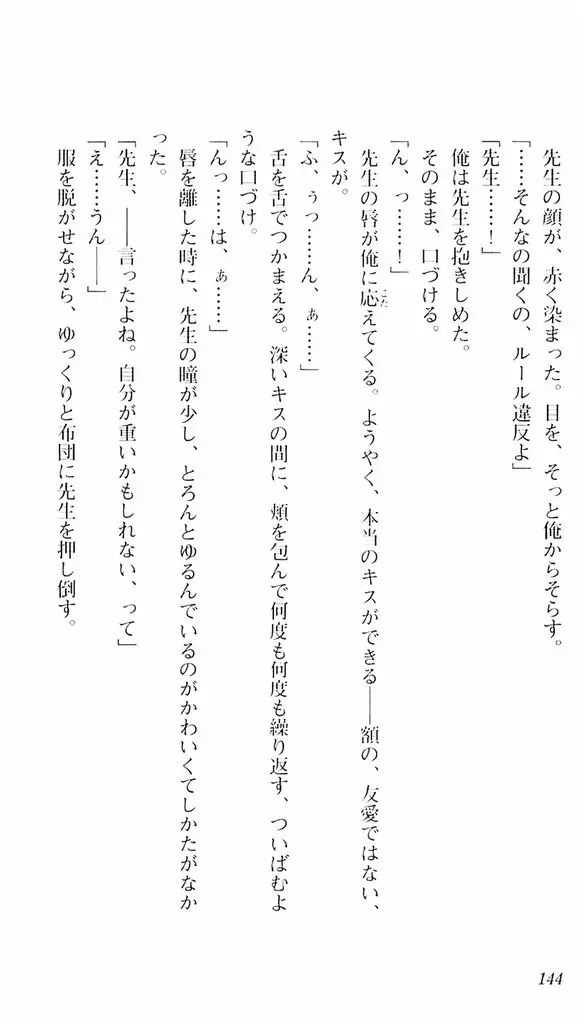 先生の顔が、赤く染まった。目を、そっと俺からそらす。
「……そんなの聞くの、ルール違反よ」
「先生……！」
俺は先生を抱きしめた。
そのまま、口づける。
「ん、っ……！」
先生の唇が俺に応えてくる。ようやく、本当のキスができる——額の、友愛ではない、
キスが。
「ふ、ぅっ……ん、ぁ……」
舌を舌でつかまえる。深いキスの間に、頬を包んで何度も何度も繰り返す、ついばむよ
うな口づけ。
「んっ……は、ぁ……」
唇を離した時に、先生の瞳が少し、とろんとゆるんでいるのがかわいくてしかたがなか
った。
「先生、——言ったよね。自分が重いかもしれない、って」
「え……うん——」
服を脱がせながら、ゆっくりと布団に先生を押し倒す。
144